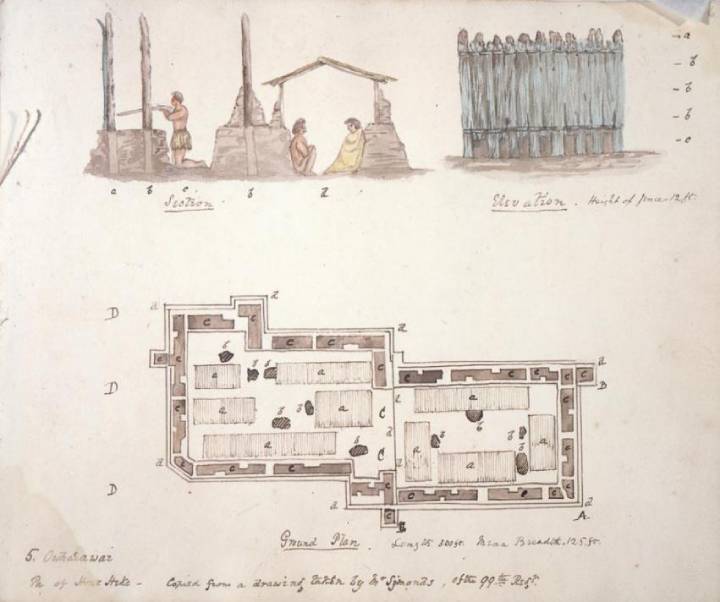 a
b
b
b
c
a b c b d
Section
Elevation. Height of fence 12 ft.
D
D
D
d d d d d
c c c c c c c c c c c c
b b b b b b b b b
a a a a a a a a a
B
B
A
Ground Plan. Length 300 ft. Mean Breadth, 125 ft.
5. Ohaeawai
Pa of Hone Heke - Copied from a drawing taken by Mr Symonds, of the 99th Regt.